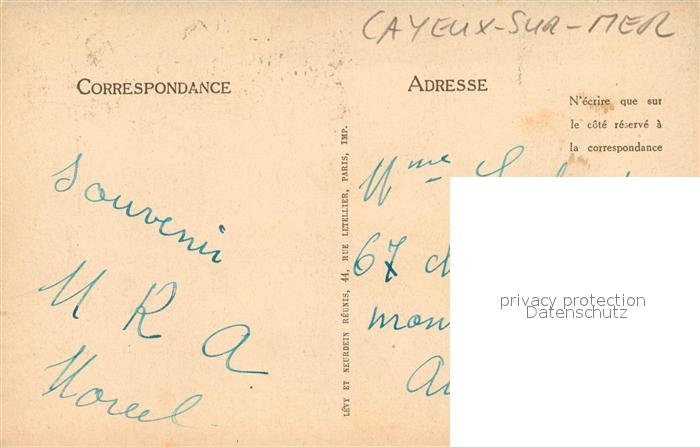 CAYEUX-SUR-MER
CORRESPONDANCE
ADRESSE
N'écrire que sur
le côté réservé à
la correspondance
Souvenir
M R A
LÉVY ET NEURDEIN RÉUNIS, 44, RUE LETELLIER, PARIS, IMP.
Mme
67
privacy protection
Datenschutz